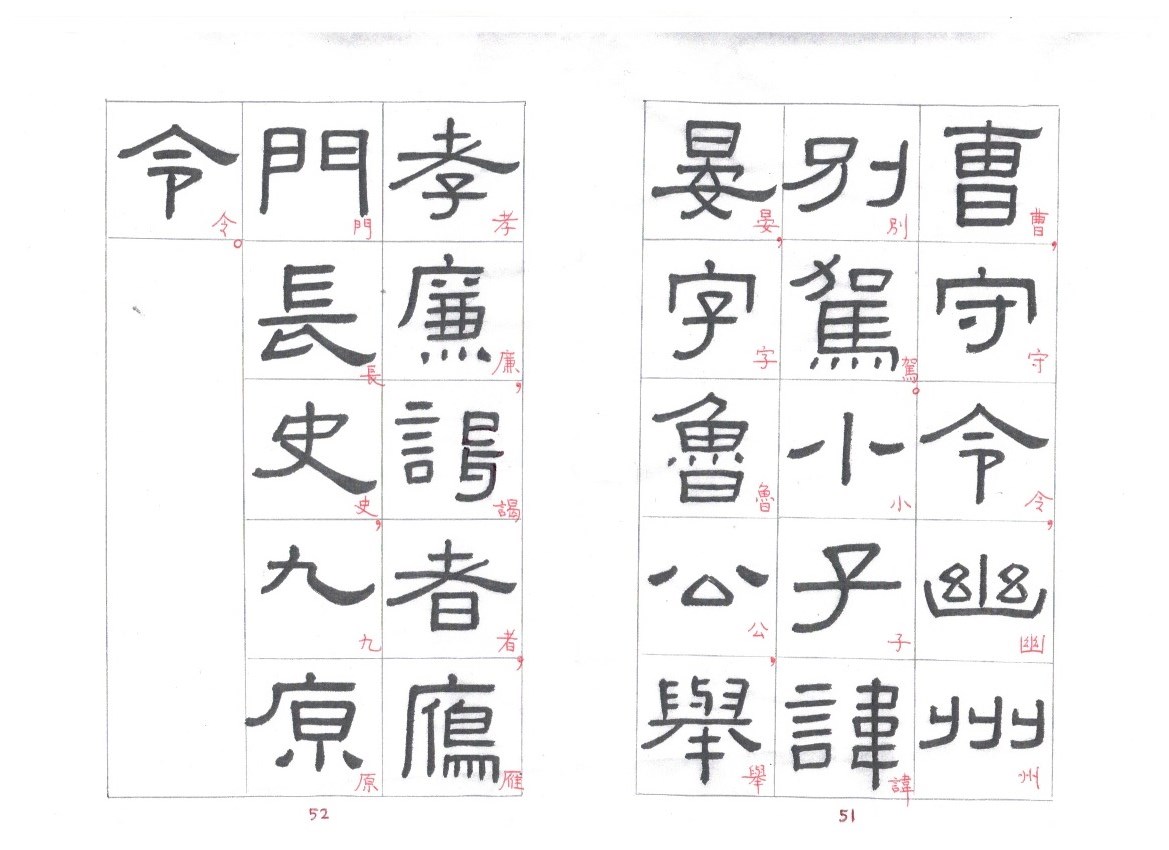 曹守令幽州
曹，守令，幽州
別駕小子諱
別駕。小子諱
晏字魯公舉
晏，字魯公，舉
51
孝廉謁者鴈
孝廉，謁者，雁
門長史九原
門長史，九原
令
令。
52